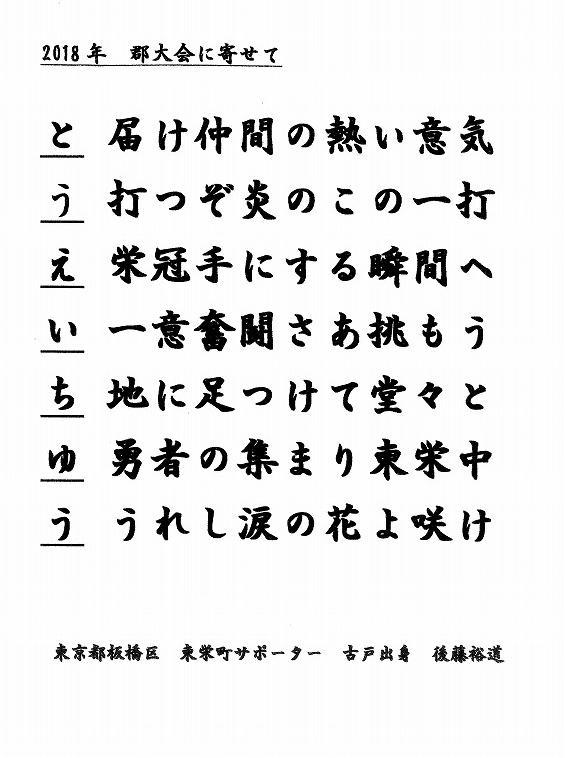 2018年　郡大会に寄せて
と　届け仲間の熱い意気
う　打つぞ炎のこの一打
え　栄冠手にする瞬間へ
い　一意奮闘さあ挑もう
ち　地に足つけて堂々と
ゅ　勇者の集まり東栄中
う　うれし涙の花よ咲け
東京都板橋区　東栄町サポーター　古戸出身　後藤裕道